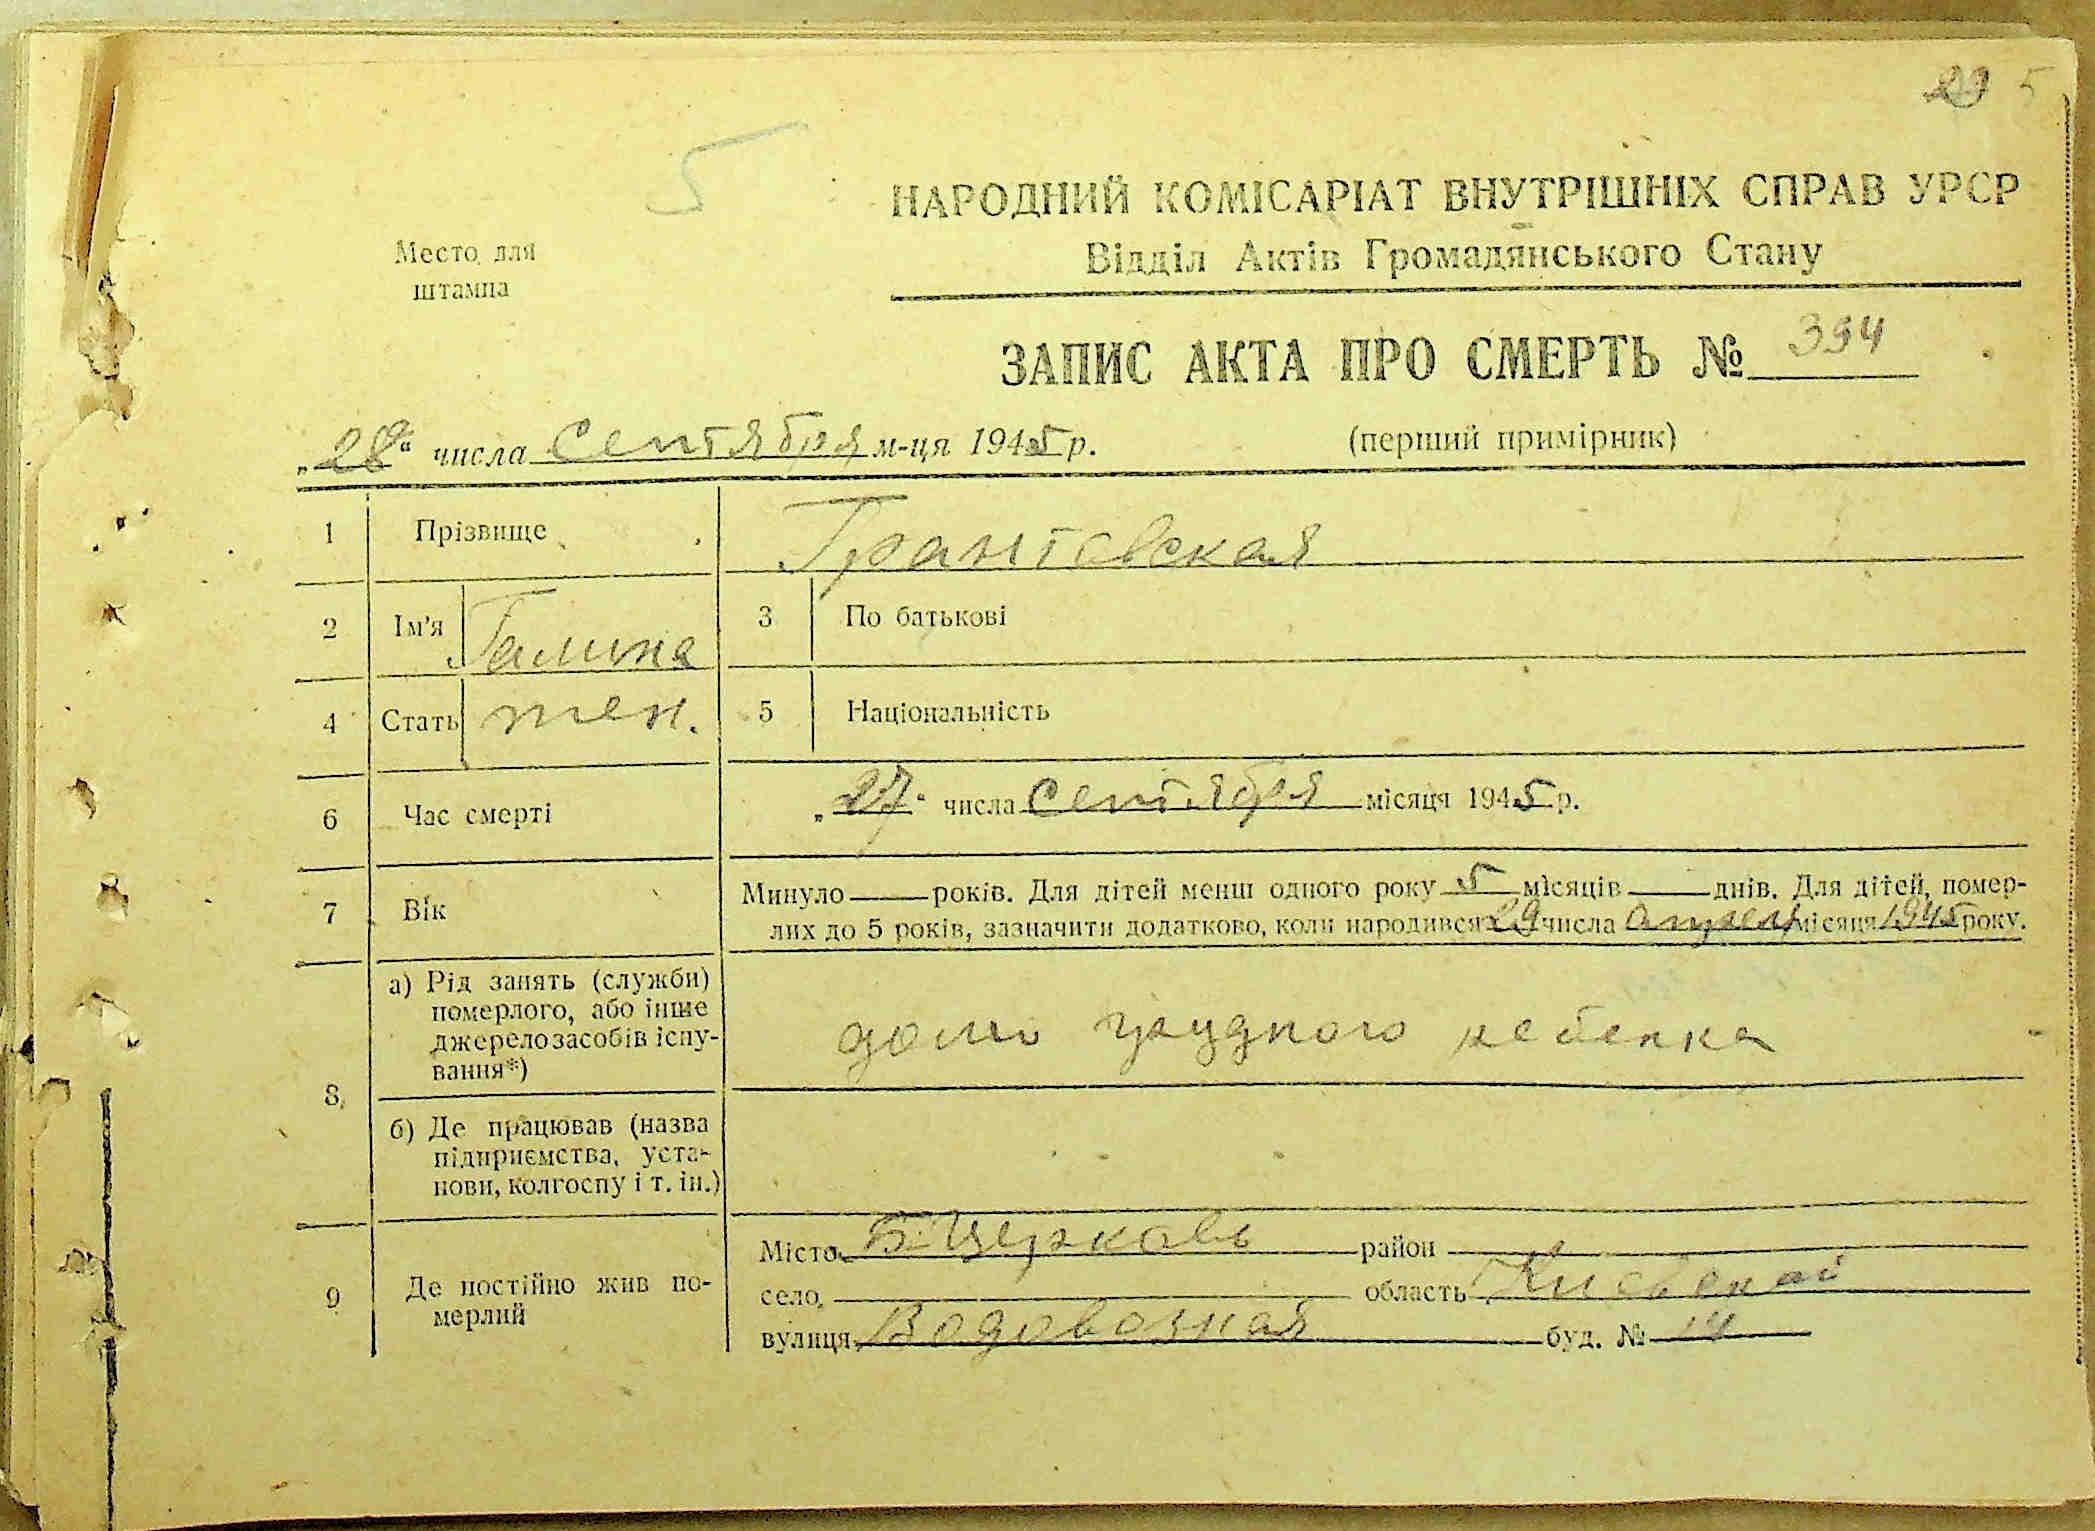 5
НАРОДНИЙ КОМІСАРІАТ ВНУТРІШНІХ СПРАВ УРСР
Відділ Актів Громадянського Стану
Место для
штампа
ЗАПИС АКТА ПРО СМЕРТЬ № 394
„28“ числа Сентября м-ця 1945 р.
(перший примірник)
1 Прізвище Грантовская
2 Ім'я Галина 3 По батькові
4 Стать жен. 5 Національність
6 Час смерті „27“ числа Сентября місяця 1945 р.
7 Вік Минуло — років. Для дітей менш одного року 5 місяців — днів. Для дітей, помер-
лих до 5 років, зазначити додатково, коли народився 29 числа апреля місяця 1945 року.
8. а) Рід занять (служби)
померлого, або інше
джерело засобів існу-
вання*)
дом грудного ребенка
б) Де працював (назва
підприємства, уста-
нови, колгоспу і т. ін.)
9 Де постійно жив по-
мерлий
Місто Б-Церковь район
село область Киевской
вулиця Водовозная буд. № 14